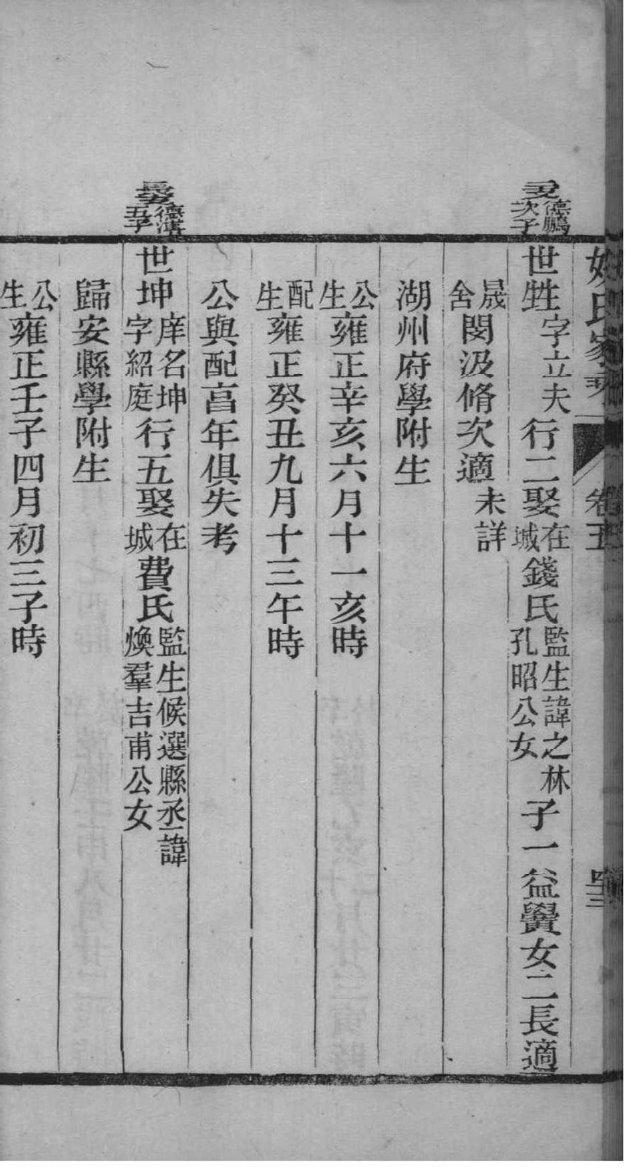 姚氏家乘 卷五
德鵬次子
世甡 字立夫 行二娶 在城 錢氏 監生諱之林孔昭公女 子一益黌女二長適
晟舍 閔汲脩次適 未詳
湖州府學附生
公生 雍正辛亥六月十一亥時
配生 雍正癸丑九月十三午時
公與配亯年俱失考
五子
世坤 庠名坤字紹庭 行五娶 在城 費氏 監生候選縣丞諱煥羣吉甫公女
歸安縣學附生
公生 雍正壬子四月初三子時